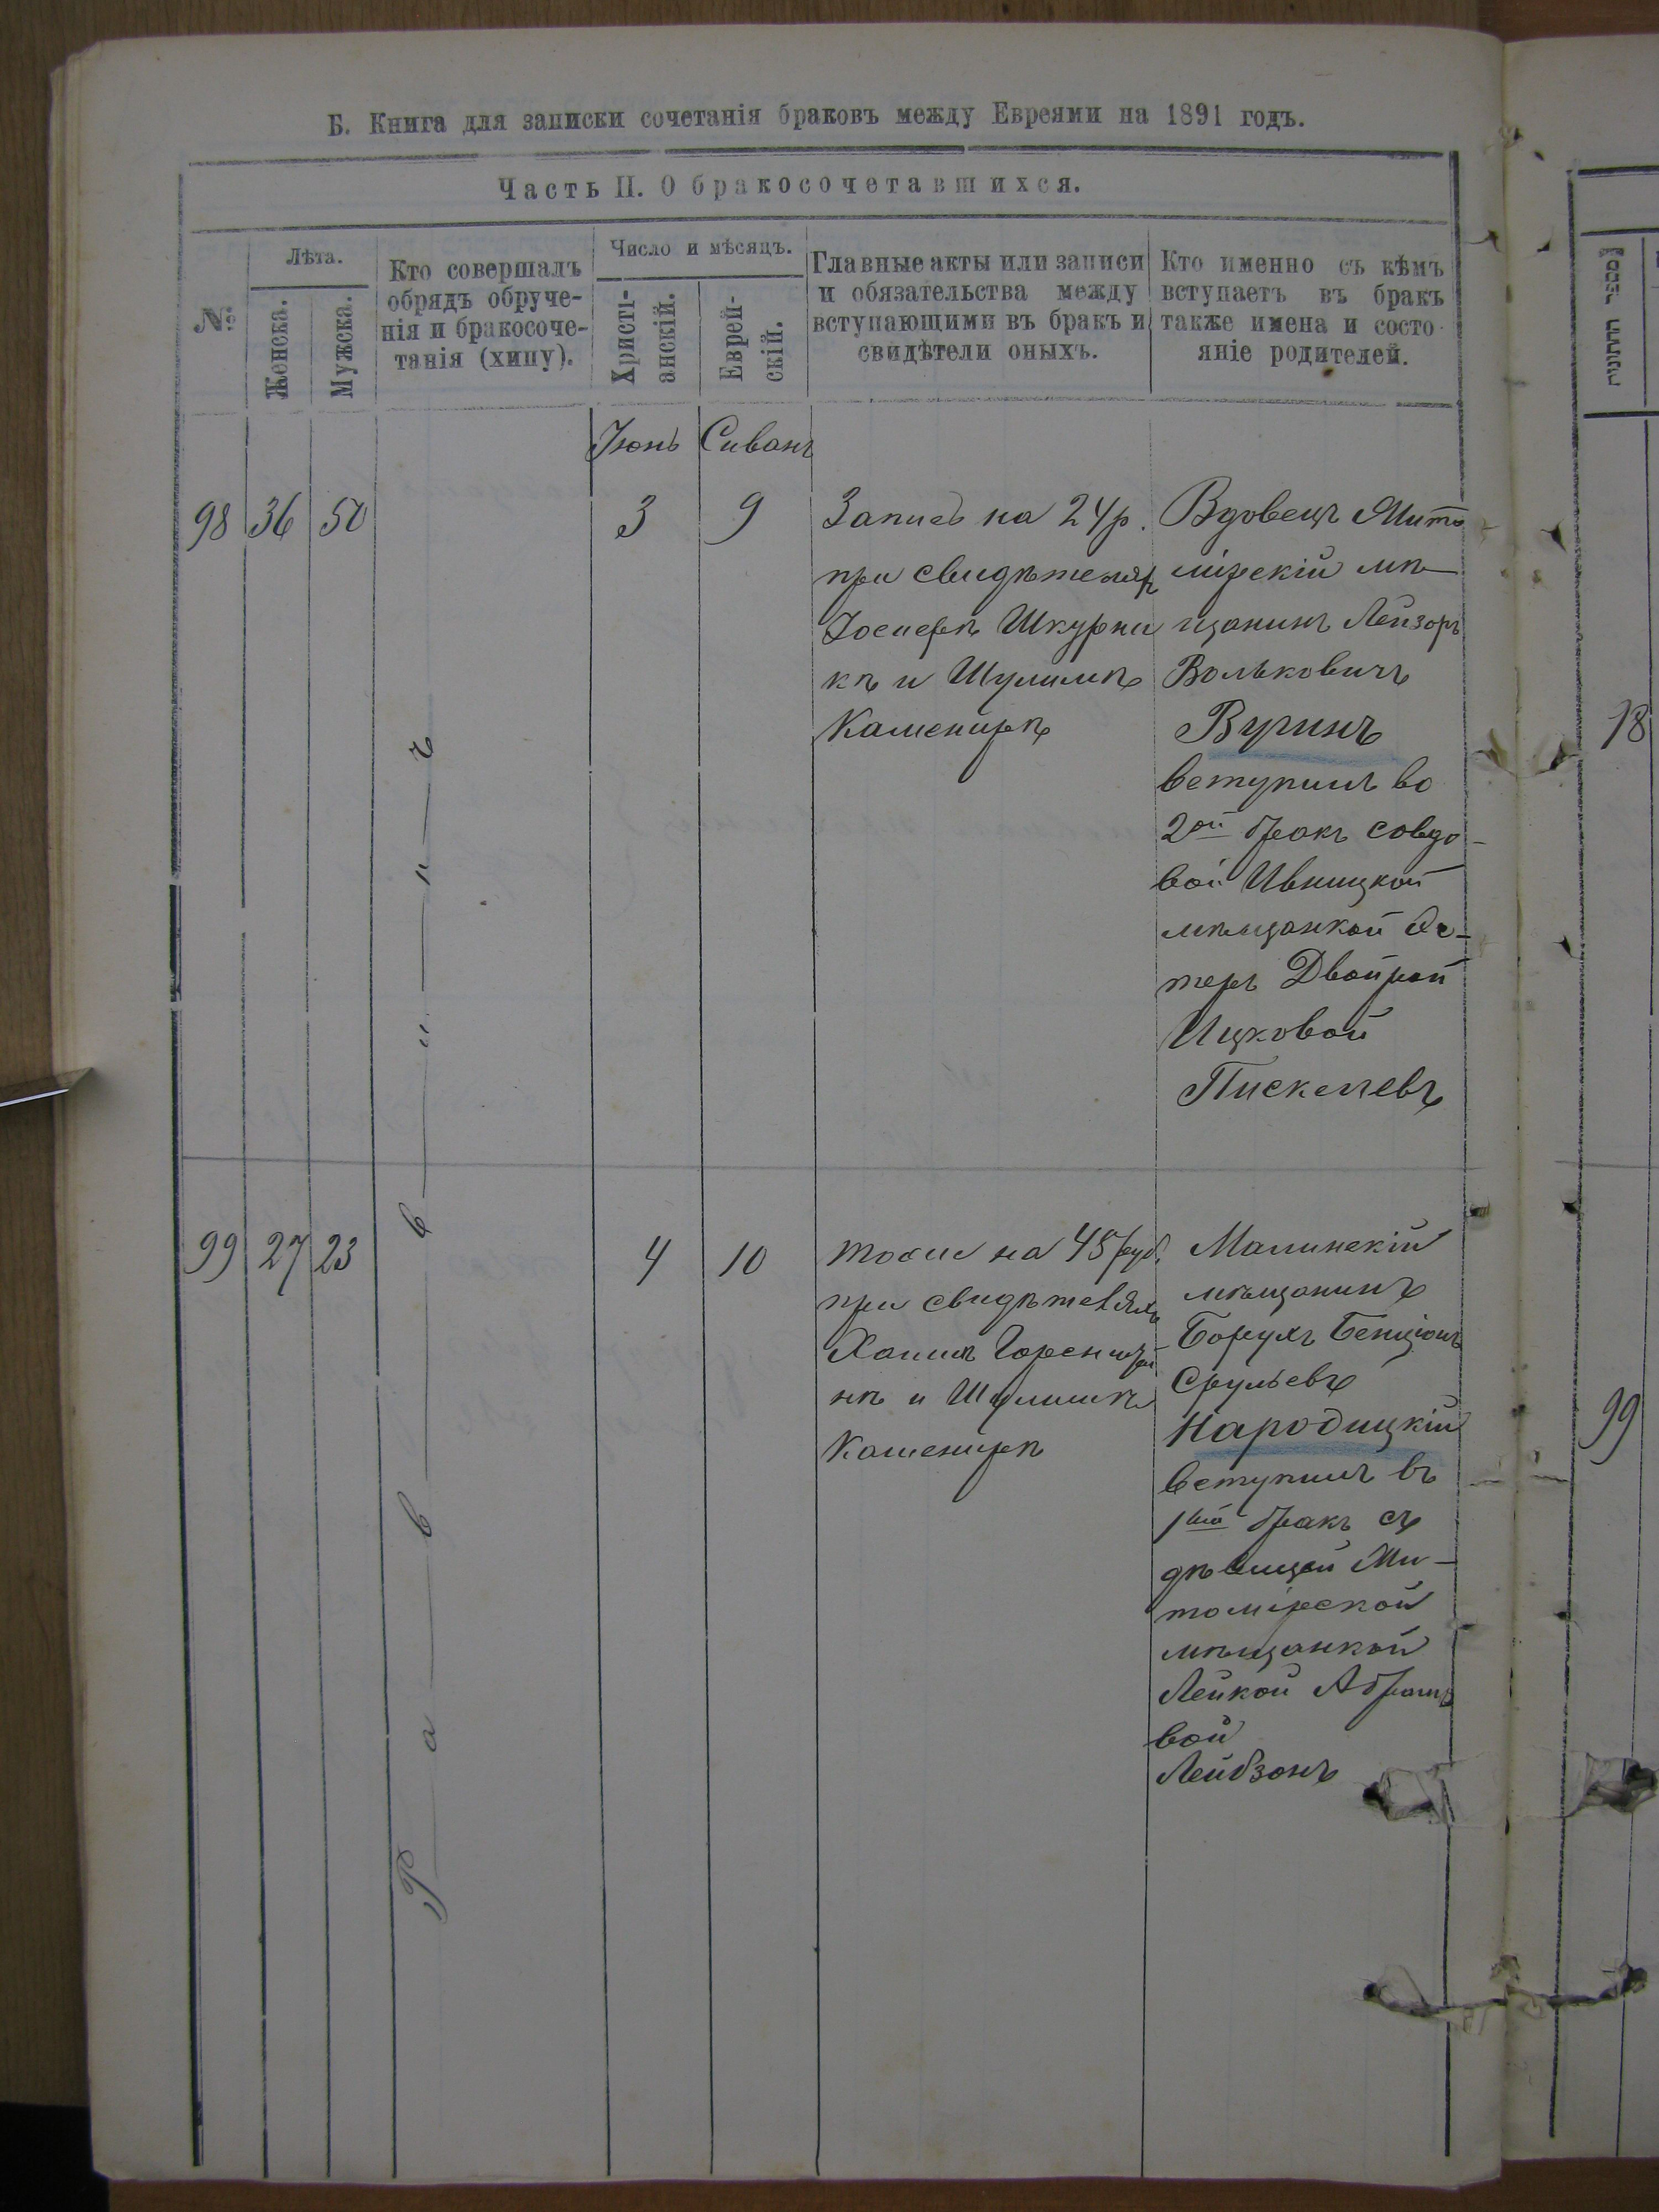 Б. Книга для записки сочетанія браковъ между Евреями на 1891 годъ.
Часть II. О бракосочетавшихся.
№
Лѣта.
Женска.
Мужска.
Кто совершалъ
обрядъ обруче-
нія и бракосоче-
танія (хипу).
Число и мѣсяцъ.
Христі-
анскій.
Еврей-
скій.
Главные акты или записи
и обязательства между
вступающими въ бракъ и
свидѣтели оныхъ.
Кто именно съ кѣмъ
вступаетъ въ бракъ
также имена и состо-
яніе родителей.
Іюнь Сиванъ
98 36 50
3 9
Запись на 24 р.
при свидѣтеляхъ
Іосифѣ Шкурни
кѣ и Шулимѣ
Каменирѣ
Вдовецъ Жито
мірскій мѣ-
щанинъ Лейзоръ
Вольковичъ
вступилъ во
2ой бракъ совдо-
вой Ивницкой
мѣщанкой Эс-
теръ Двойрой
Ицковой
Пискелевъ
Раввинъ
99 27 23
4 10
тоже на 45 руб.
при свидѣтеляхъ
Хаимѣ
нѣ и Шулимѣ
Каменирѣ
Малинскій
мѣщанинъ
Борухъ Бенціонъ
Срульевъ
Народицкій
вступилъ въ
1ый бракъ съ
дѣвицей Жи-
томірской
мѣщанкой
Лейкой Абрамо
вой
Лейбзонъ
מספר החתונות
98
99